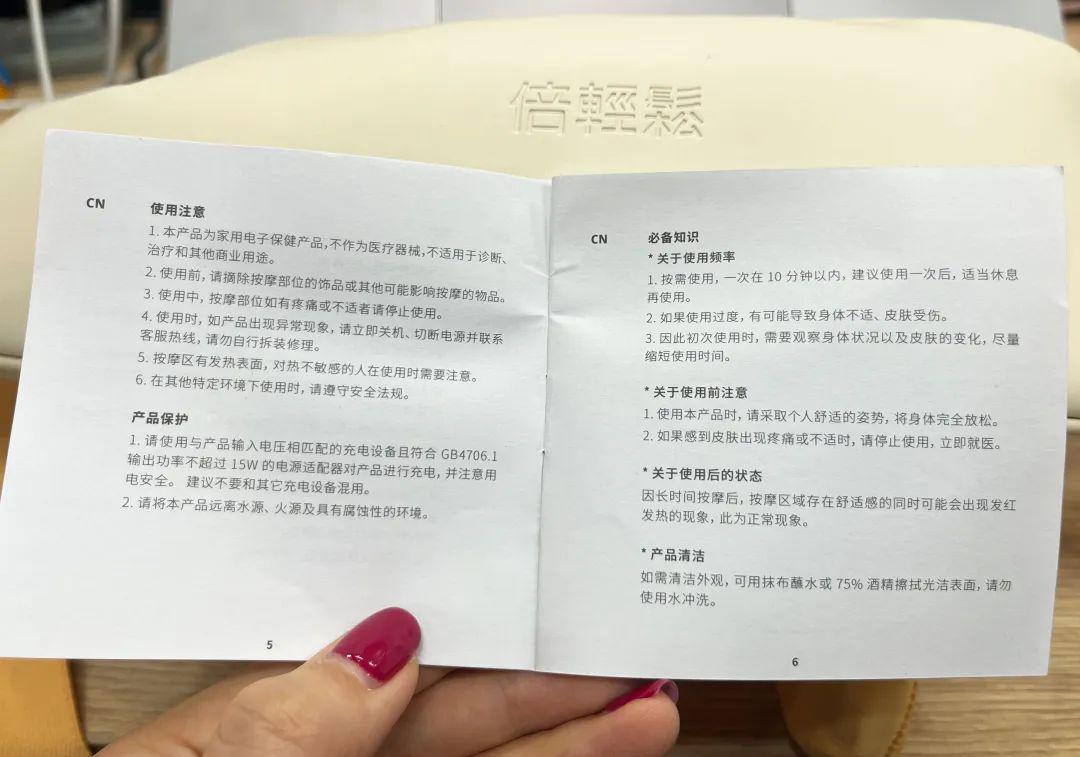 倍輕鬆
CN
使用注意
1. 本产品为家用电子保健产品,不作为医疗器械,不适用于诊断、
治疗和其他商业用途。
2. 使用前,请摘除按摩部位的饰品或其他可能影响按摩的物品。
3. 使用中，按摩部位如有疼痛或不适者请停止使用。
4. 使用时，如产品出现异常现象，请立即关机、切断电源并联系
客服热线，请勿自行拆装修理。
5. 按摩区有发热表面，对热不敏感的人在使用时需要注意。
6. 在其他特定环境下使用时,请遵守安全法规。
产品保护
1. 请使用与产品输入电压相匹配的充电设备且符合 GB4706.1
输出功率不超过 15W 的电源适配器对产品进行充电，并注意用
电安全。 建议不要和其它充电设备混用。
2. 请将本产品远离水源、火源及具有腐蚀性的环境。
5
CN
必备知识
* 关于使用频率
1. 按需使用，一次在 10 分钟以内，建议使用一次后，适当休息
再使用。
2. 如果使用过度，有可能导致身体不适、皮肤受伤。
3. 因此初次使用时，需要观察身体状况以及皮肤的变化，尽量
缩短使用时间。
* 关于使用前注意
1. 使用本产品时，请采取个人舒适的姿势，将身体完全放松。
2. 如果感到皮肤出现疼痛或不适时，请停止使用，立即就医。
* 关于使用后的状态
因长时间按摩后，按摩区域存在舒适感的同时可能会出现发红
发热的现象，此为正常现象。
* 产品清洁
如需清洁外观，可用抹布蘸水或 75% 酒精擦拭光洁表面，请勿
使用水冲洗。
6